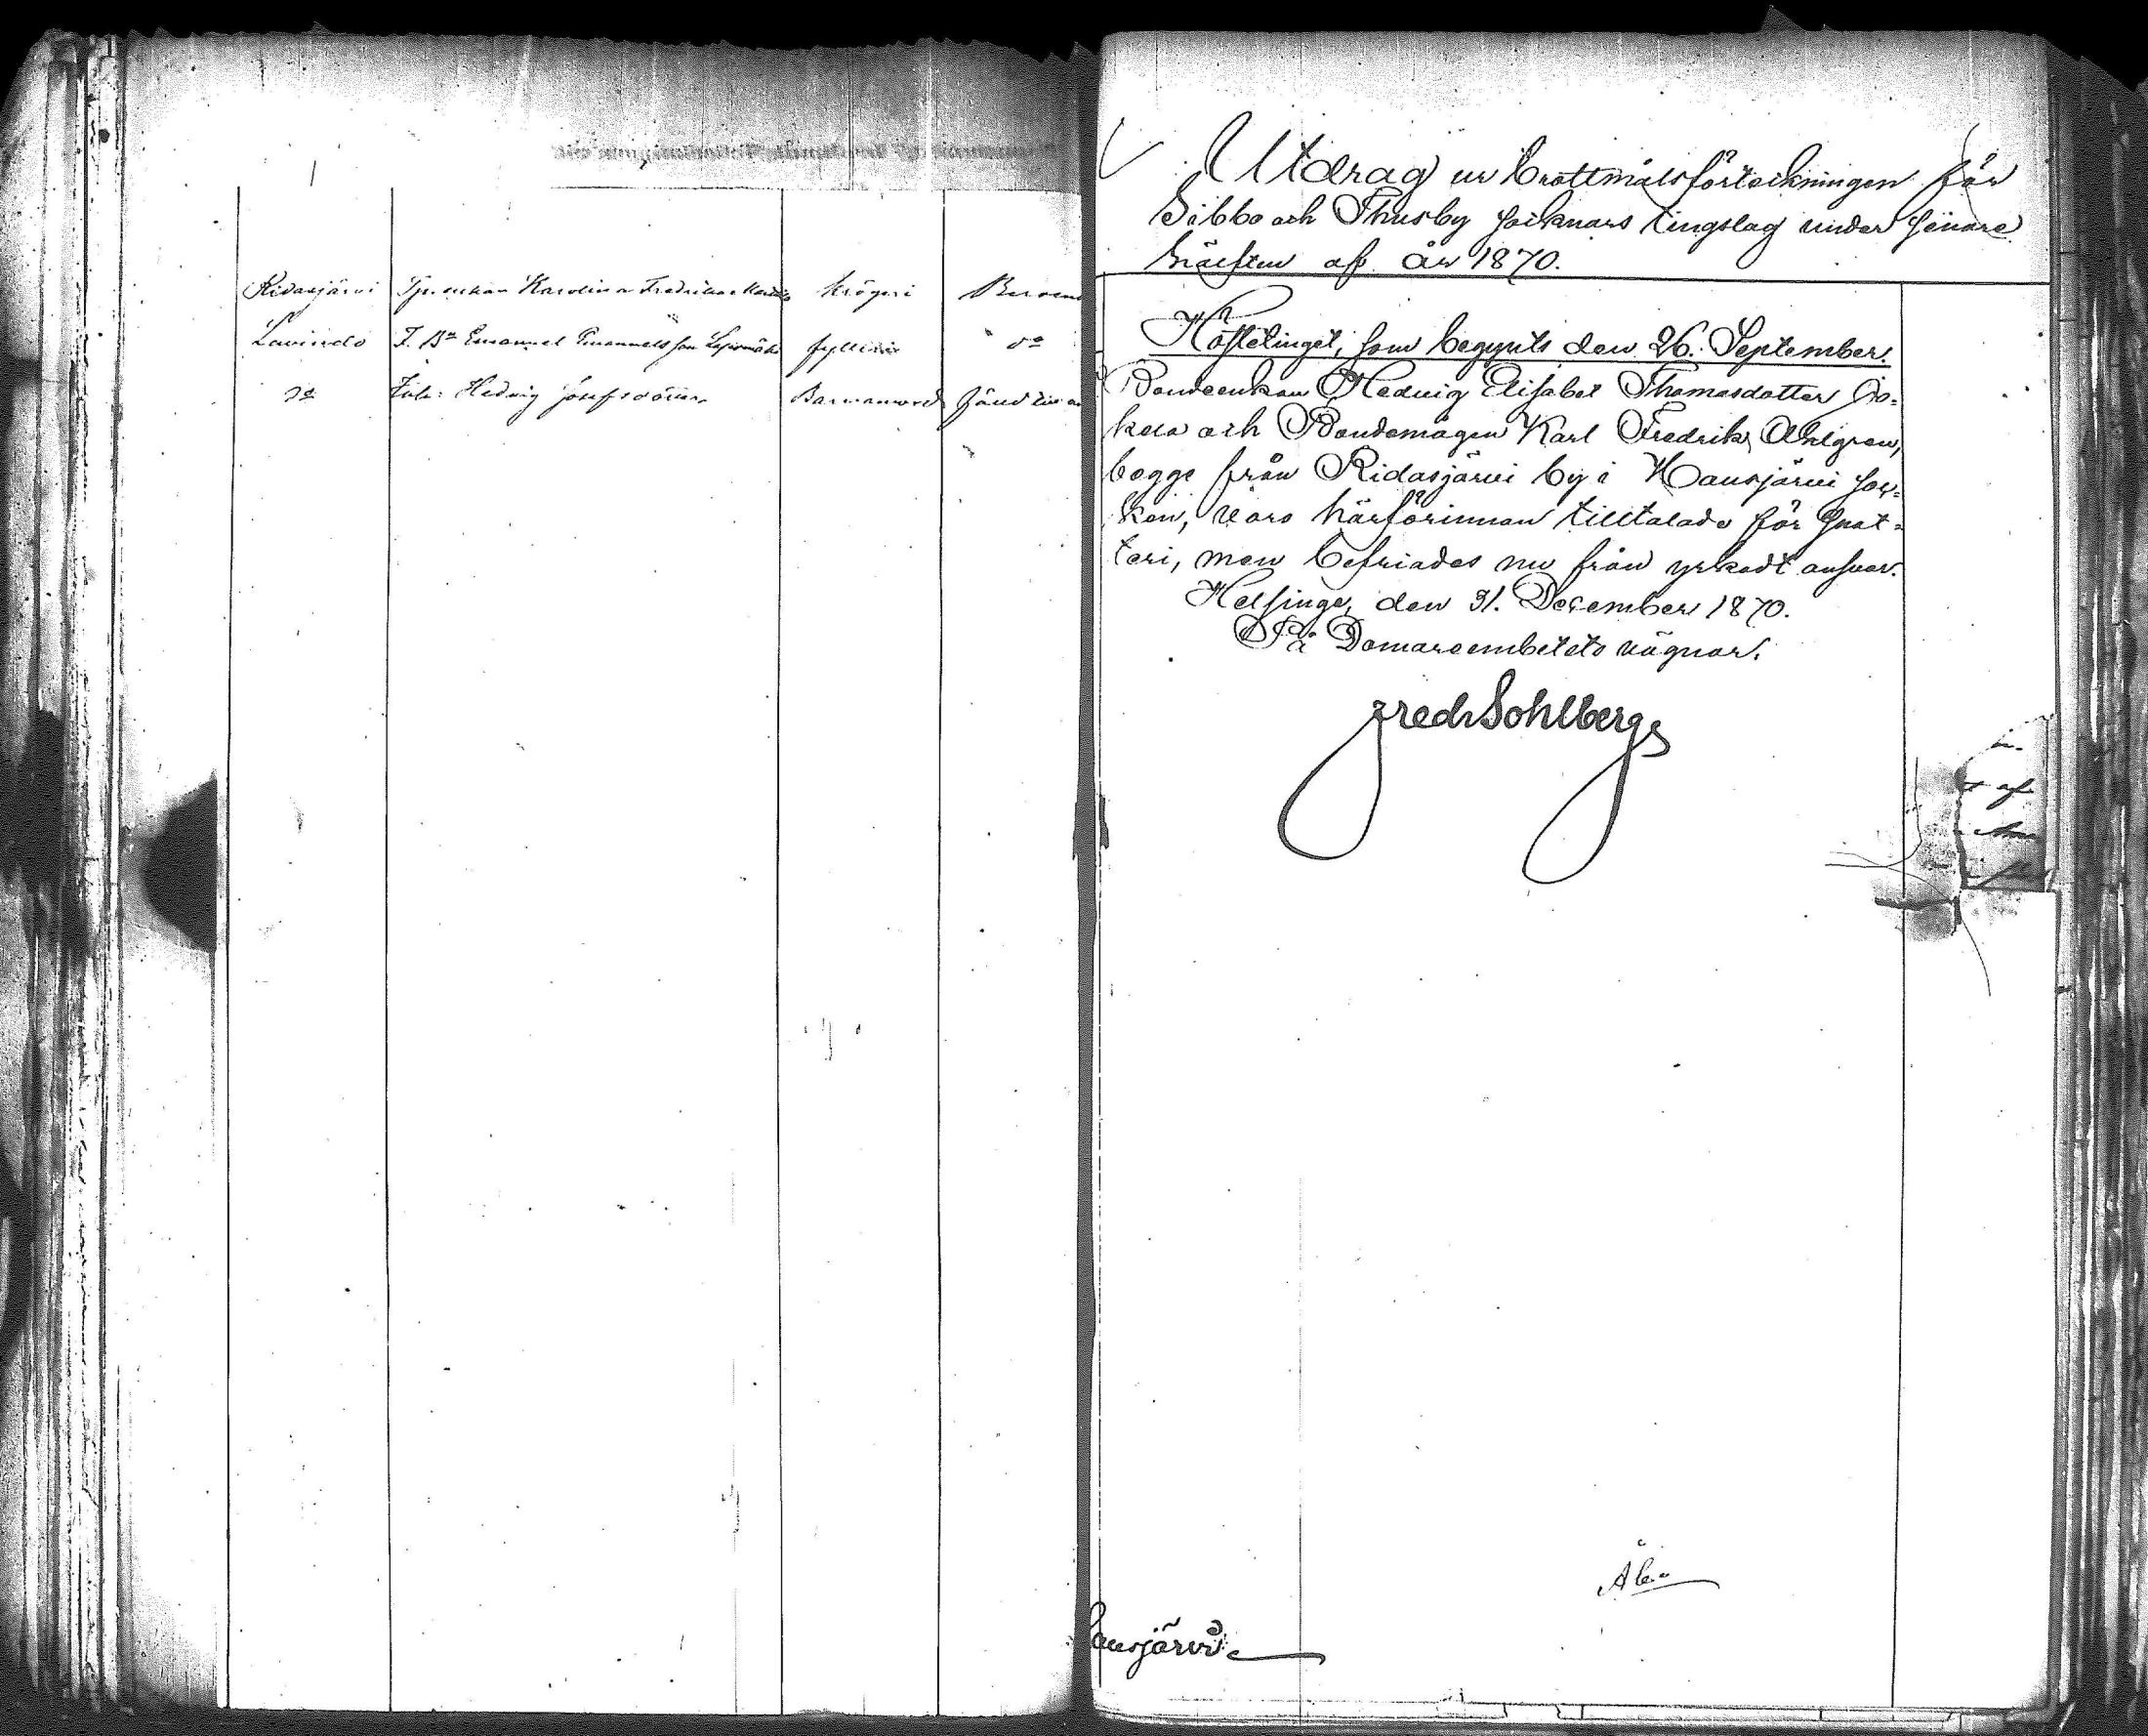 Ridasjärvi Tj. enkan Karolina Fredrika krögeri
Lavindo T. Bn Emanuel Emanuelsson fylleri do
do Hedvig Josefsdotter Barnamord
Utdrag ur brottmålsförteckningen för
Sibbo och Thusby socknars tingslag under senare
hälften af år 1870.
Höstetinget, som begynts den 26. September.
Bondeenkan Hedvig Elisabet Thomasdotter
och Bondemågen Karl Fredrik Ahlgren,
begge från Ridasjärvi by i Hausjärvi soc=
ken, voro härförinnan tilltalade för snat=
teri, men befriades nu från yrkadt ansvar.
Helsinge, den 31. December 1870.
På Domareembetets vägnar.
Fredr Sohlberg
af
Åbo
Hausjärvi